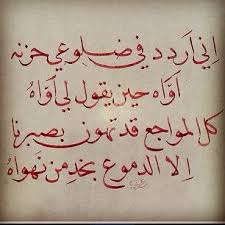 إني أردد في ضلوعي حزنه
أواه حين يقول لي أواهُ
كل المواجع قد تهون بصبرنا
إلا الدموع بخد من نهواهُ